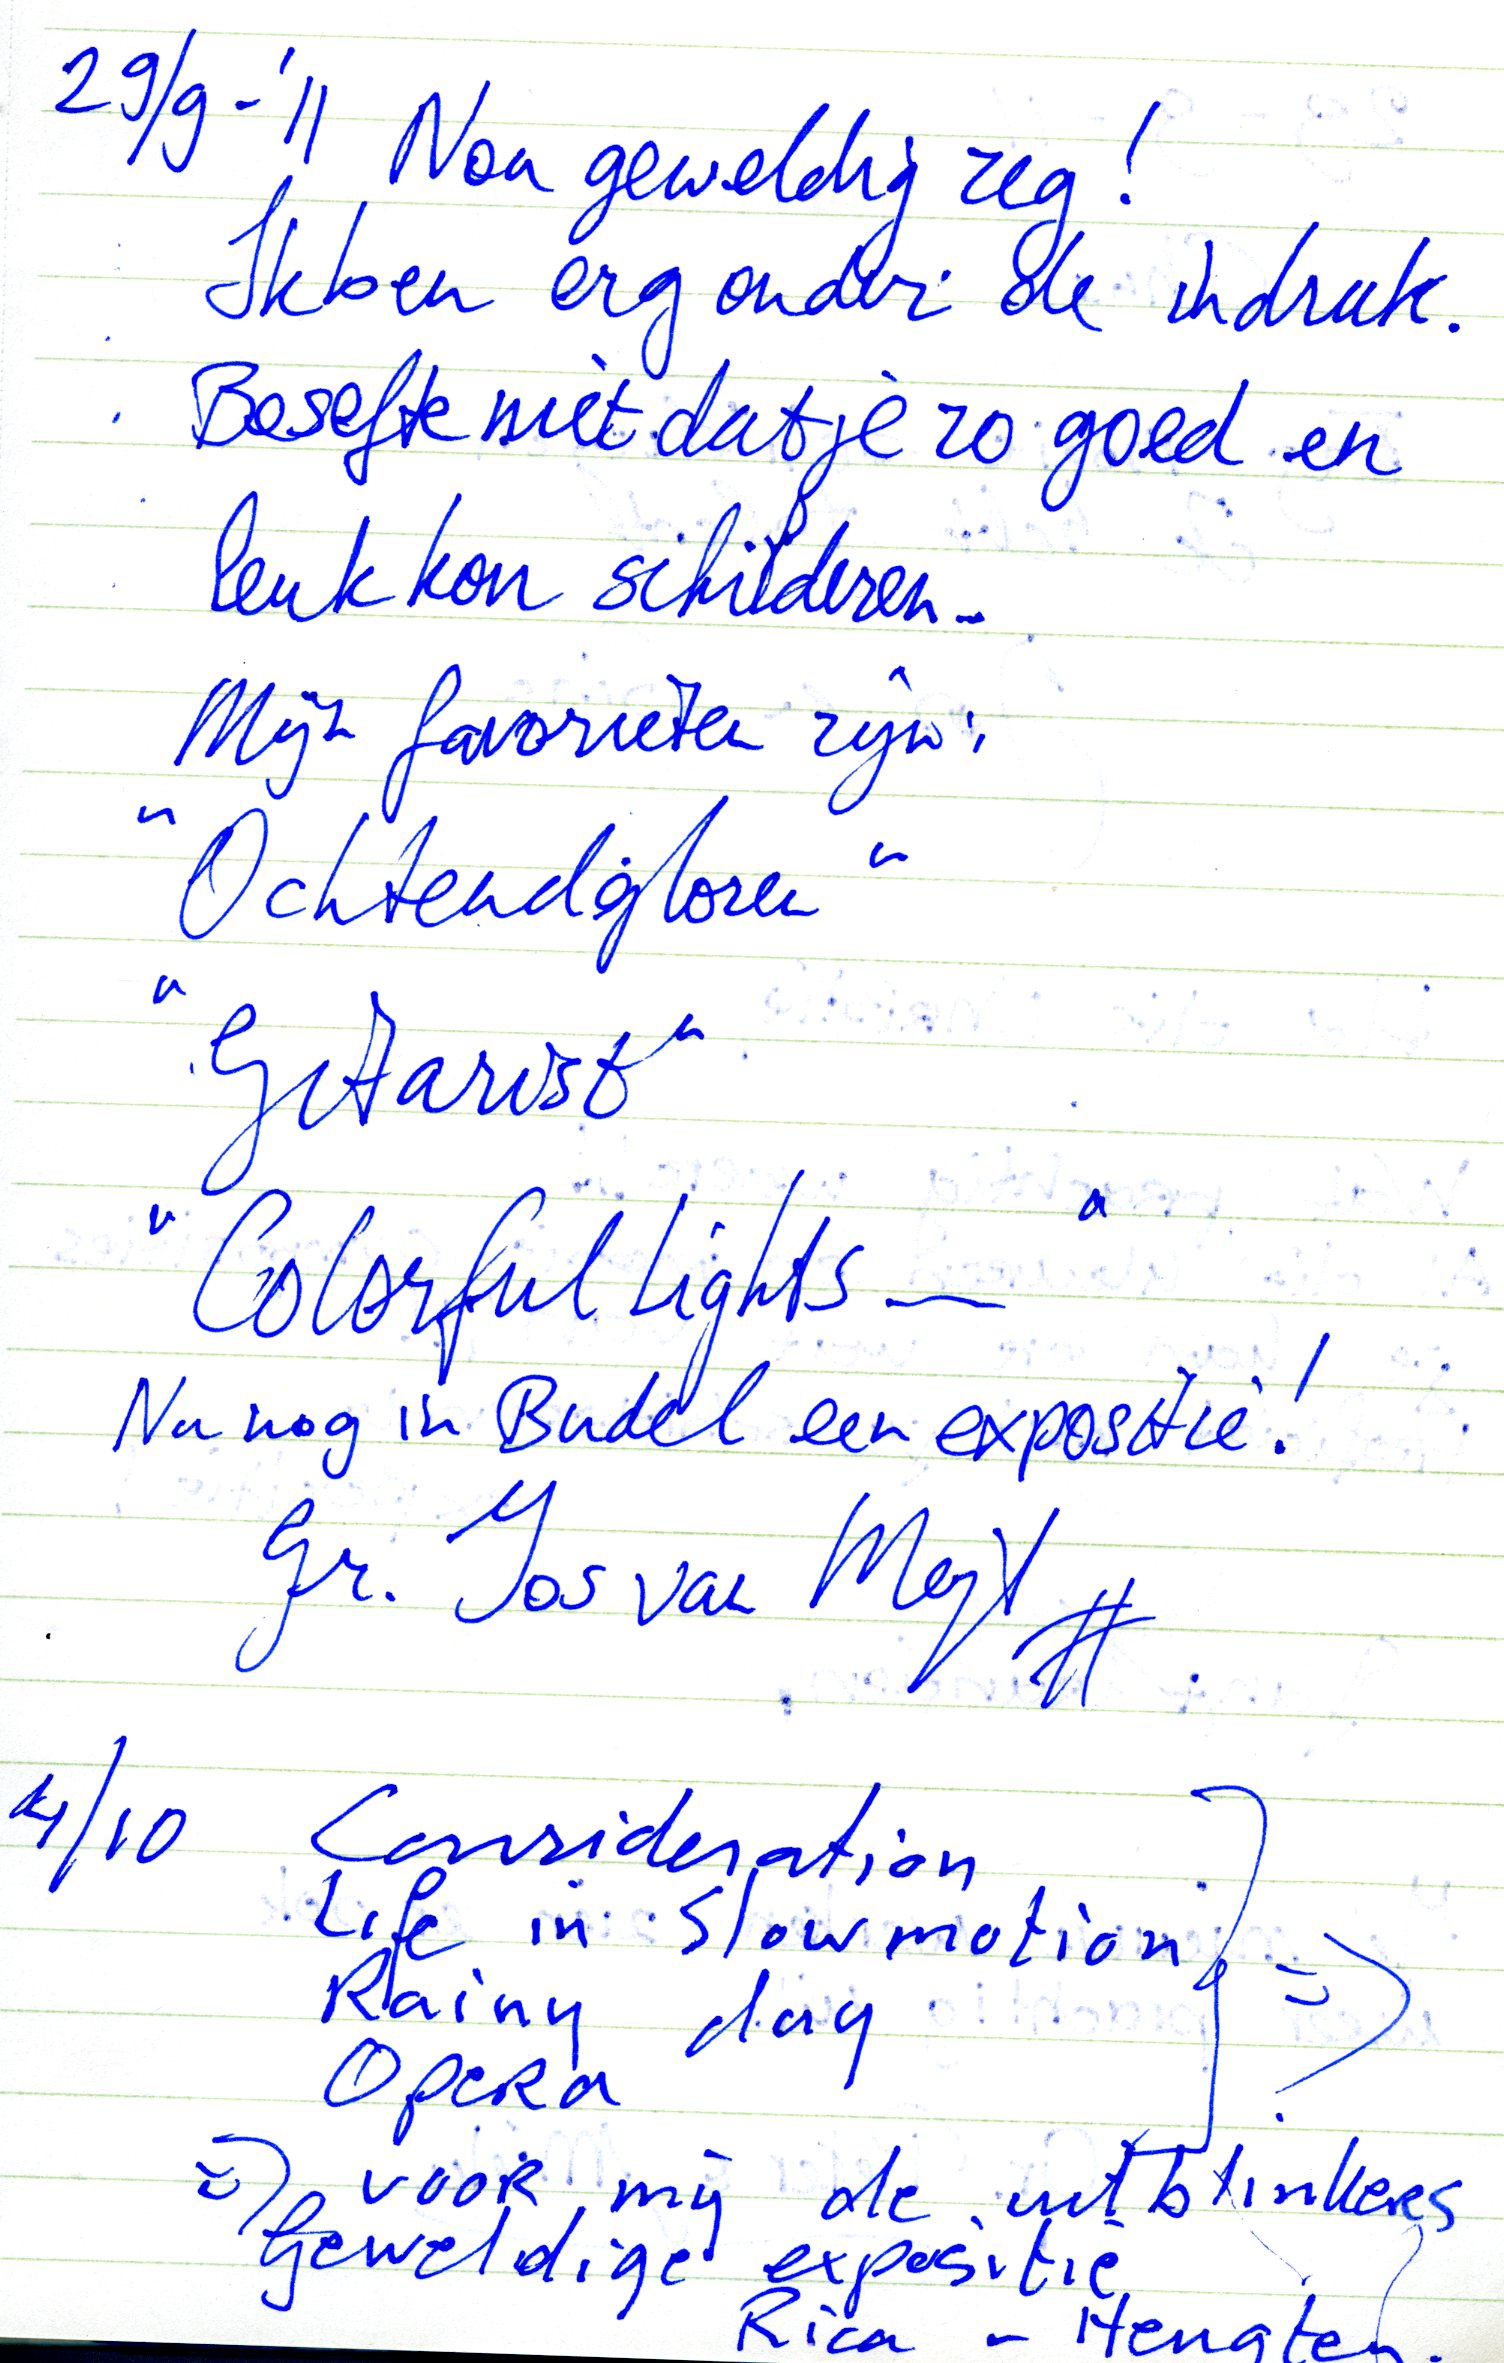 29/9-'11 Nou geweldig zeg!
Ik ben erg onder de indruk.
Besefte niet dat je zo goed en
leuk kon schilderen.
Mijn favorieten zijn:
"Ochtendgloren"
"Gitarist"
"Colorful Lights —"
Nu nog in Budel een expositie!
Gr. Jos van Mejl
4/10 Consideration
Life in Slowmotion
Rainy day
Opera
=> voor mij de uitblinkers
Geweldige expositie
Rica - Hengten.